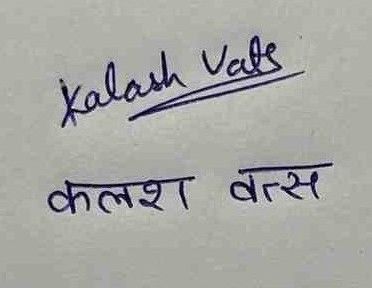 Kalash Vats
कलश वत्स